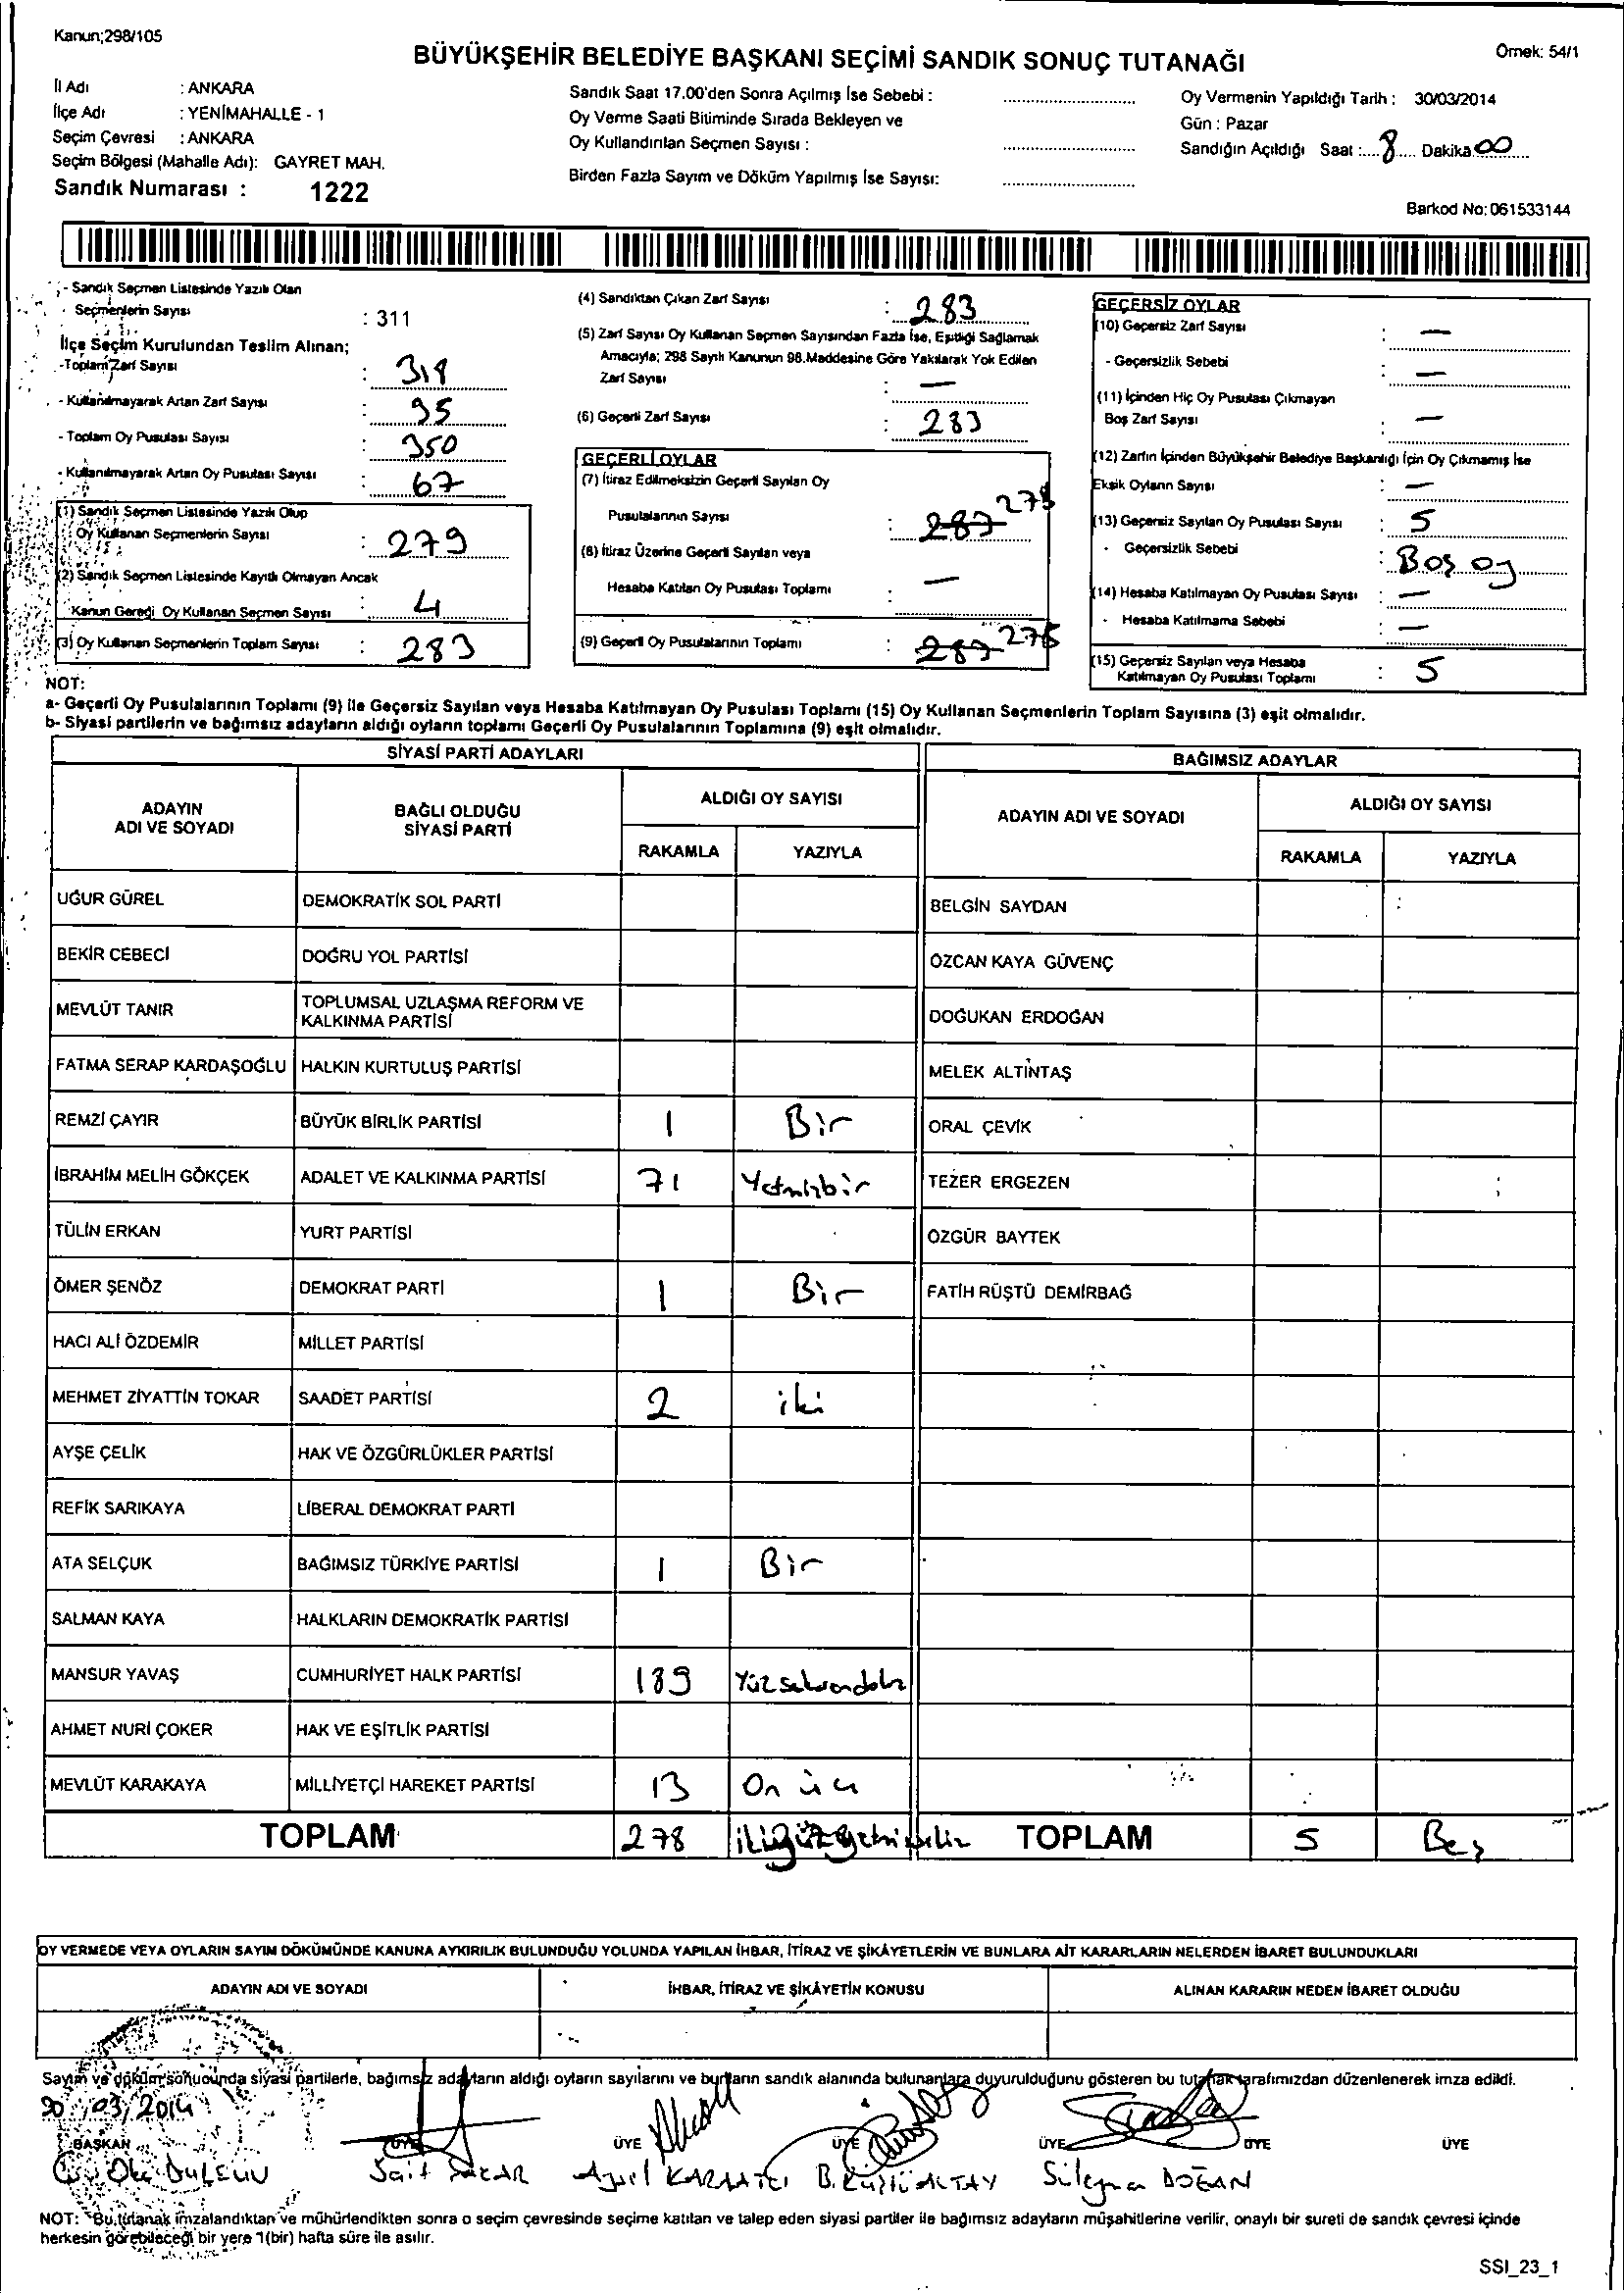 Kanun;298/105
BÜYÜKŞEHİR BELEDİYE BAŞKANI SEÇİMİ SANDIK SONUÇ TUTANAĞI
Örnek: 54/1
İl Adı : ANKARA
İlçe Adı : YENİMAHALLE - 1
Seçim Çevresi : ANKARA
Seçim Bölgesi (Mahalle Adı): GAYRET MAH.
Sandık Numarası : 1222
Sandık Saat 17.00'den Sonra Açılmış İse Sebebi :
Oy Verme Saati Bitiminde Sırada Bekleyen ve
Oy Kullandırılan Seçmen Sayısı :
Birden Fazla Sayım ve Döküm Yapılmış İse Sayısı:
Oy Vermenin Yapıldığı Tarih : 30/03/2014
Gün : Pazar
Sandığın Açıldığı Saat : 8 Dakika 00
Barkod No: 061533144
- Sandık Seçmen Listesinde Yazılı Olan
Seçmenlerin Sayısı : 311
İlçe Seçim Kurulundan Teslim Alınan;
-Toplam Zarf Sayısı : 318
- Kullanılmayarak Artan Zarf Sayısı : 35
- Toplam Oy Pusulası Sayısı : 350
- Kullanılmayarak Artan Oy Pusulası Sayısı : 67
(1) Sandık Seçmen Listesinde Yazılı Olup
Oy Kullanan Seçmenlerin Sayısı : 279
(2) Sandık Seçmen Listesinde Kayıtlı Olmayan Ancak
Kanun Gereği Oy Kullanan Seçmen Sayısı : 4
(3) Oy Kullanan Seçmenlerin Toplam Sayısı : 283
(4) Sandıktan Çıkan Zarf Sayısı : 283
(5) Zarf Sayısı Oy Kullanan Seçmen Sayısından Fazla İse, Eşitliği Sağlamak
Amacıyla; 298 Sayılı Kanunun 98.Maddesine Göre Yakılarak Yok Edilen
Zarf Sayısı : —
(6) Geçerli Zarf Sayısı : 283
GEÇERLİ OYLAR
(7) İtiraz Edilmeksizin Geçerli Sayılan Oy
Pusulalarının Sayısı : 283 278
(8) İtiraz Üzerine Geçerli Sayılan veya
Hesaba Katılan Oy Pusulası Toplamı : —
(9) Geçerli Oy Pusulalarının Toplamı : 283 278
GEÇERSİZ OYLAR
(10) Geçersiz Zarf Sayısı : —
- Geçersizlik Sebebi : —
(11) İçinden Hiç Oy Pusulası Çıkmayan
Boş Zarf Sayısı : —
(12) Zarfın İçinden Büyükşehir Belediye Başkanlığı İçin Oy Çıkmamış İse
Eksik Oyların Sayısı : —
(13) Geçersiz Sayılan Oy Pusulası Sayısı : 5
- Geçersizlik Sebebi : Boş oy
(14) Hesaba Katılmayan Oy Pusulası Sayısı : —
- Hesaba Katılmama Sebebi : —
(15) Geçersiz Sayılan veya Hesaba
Katılmayan Oy Pusulası Toplamı : 5
NOT:
a- Geçerli Oy Pusulalarının Toplamı (9) ile Geçersiz Sayılan veya Hesaba Katılmayan Oy Pusulası Toplamı (15) Oy Kullanan Seçmenlerin Toplam Sayısına (3) eşit olmalıdır.
b- Siyasi partilerin ve bağımsız adayların aldığı oyların toplamı Geçerli Oy Pusulalarının Toplamına (9) eşit olmalıdır.
SİYASİ PARTİ ADAYLARI
BAĞIMSIZ ADAYLAR
ADAYIN ADI VE SOYADI
BAĞLI OLDUĞU SİYASİ PARTİ
ALDIĞI OY SAYISI
RAKAMLA YAZIYLA
ADAYIN ADI VE SOYADI
ALDIĞI OY SAYISI
RAKAMLA YAZIYLA
UĞUR GÜREL DEMOKRATİK SOL PARTİ BELGİN SAYDAN
BEKİR CEBECİ DOĞRU YOL PARTİSİ ÖZCAN KAYA GÜVENÇ
MEVLÜT TANIR TOPLUMSAL UZLAŞMA REFORM VE KALKINMA PARTİSİ DOĞUKAN ERDOĞAN
FATMA SERAP KARDAŞOĞLU HALKIN KURTULUŞ PARTİSİ MELEK ALTINTAŞ
REMZİ ÇAYIR BÜYÜK BİRLİK PARTİSİ 1 Bir ORAL ÇEVİK
İBRAHİM MELİH GÖKÇEK ADALET VE KALKINMA PARTİSİ 71 Yetmişbir TEZER ERGEZEN
TÜLİN ERKAN YURT PARTİSİ ÖZGÜR BAYTEK
ÖMER ŞENÖZ DEMOKRAT PARTİ 1 Bir FATİH RÜŞTÜ DEMİRBAĞ
HACI ALİ ÖZDEMİR MİLLET PARTİSİ
MEHMET ZİYATTİN TOKAR SAADET PARTİSİ 2 iki
AYŞE ÇELİK HAK VE ÖZGÜRLÜKLER PARTİSİ
REFİK SARIKAYA LİBERAL DEMOKRAT PARTİ
ATA SELÇUK BAĞIMSIZ TÜRKİYE PARTİSİ 1 Bir
SALMAN KAYA HALKLARIN DEMOKRATİK PARTİSİ
MANSUR YAVAŞ CUMHURİYET HALK PARTİSİ 189 Yüzseksendokuz
AHMET NURİ ÇOKER HAK VE EŞİTLİK PARTİSİ
MEVLÜT KARAKAYA MİLLİYETÇİ HAREKET PARTİSİ 13 On üç
TOPLAM 278 ikiyüzyetmişsekiz TOPLAM 5 Beş
OY VERMEDE VEYA OYLARIN SAYIM DÖKÜMÜNDE KANUNA AYKIRILIK BULUNDUĞU YOLUNDA YAPILAN İHBAR, İTİRAZ VE ŞİKÂYETLERİN VE BUNLARA AİT KARARLARIN NELERDEN İBARET BULUNDUKLARI
ADAYIN ADI VE SOYADI İHBAR, İTİRAZ VE ŞİKÂYETİN KONUSU ALINAN KARARIN NEDEN İBARET OLDUĞU
Sayım ve döküm sonucunda siyasi partilerle, bağımsız adayların aldığı oyların sayılarını ve bunların sandık alanında bulunanlara duyurulduğunu gösteren bu tutanak tarafımızdan düzenlenerek imza edildi.
30/03/2014
BAŞKAN ÜYE ÜYE ÜYE ÜYE ÜYE ÜYE
Sait Aysel B. ALTAY Süleyman DOĞAN
NOT: Bu tutanak imzalandıktan ve mühürlendikten sonra o seçim çevresinde seçime katılan ve talep eden siyasi partiler ile bağımsız adayların müşahitlerine verilir, onaylı bir sureti de sandık çevresi içinde
herkesin görebileceği bir yere 1(bir) hafta süre ile asılır.
SSI_23_1